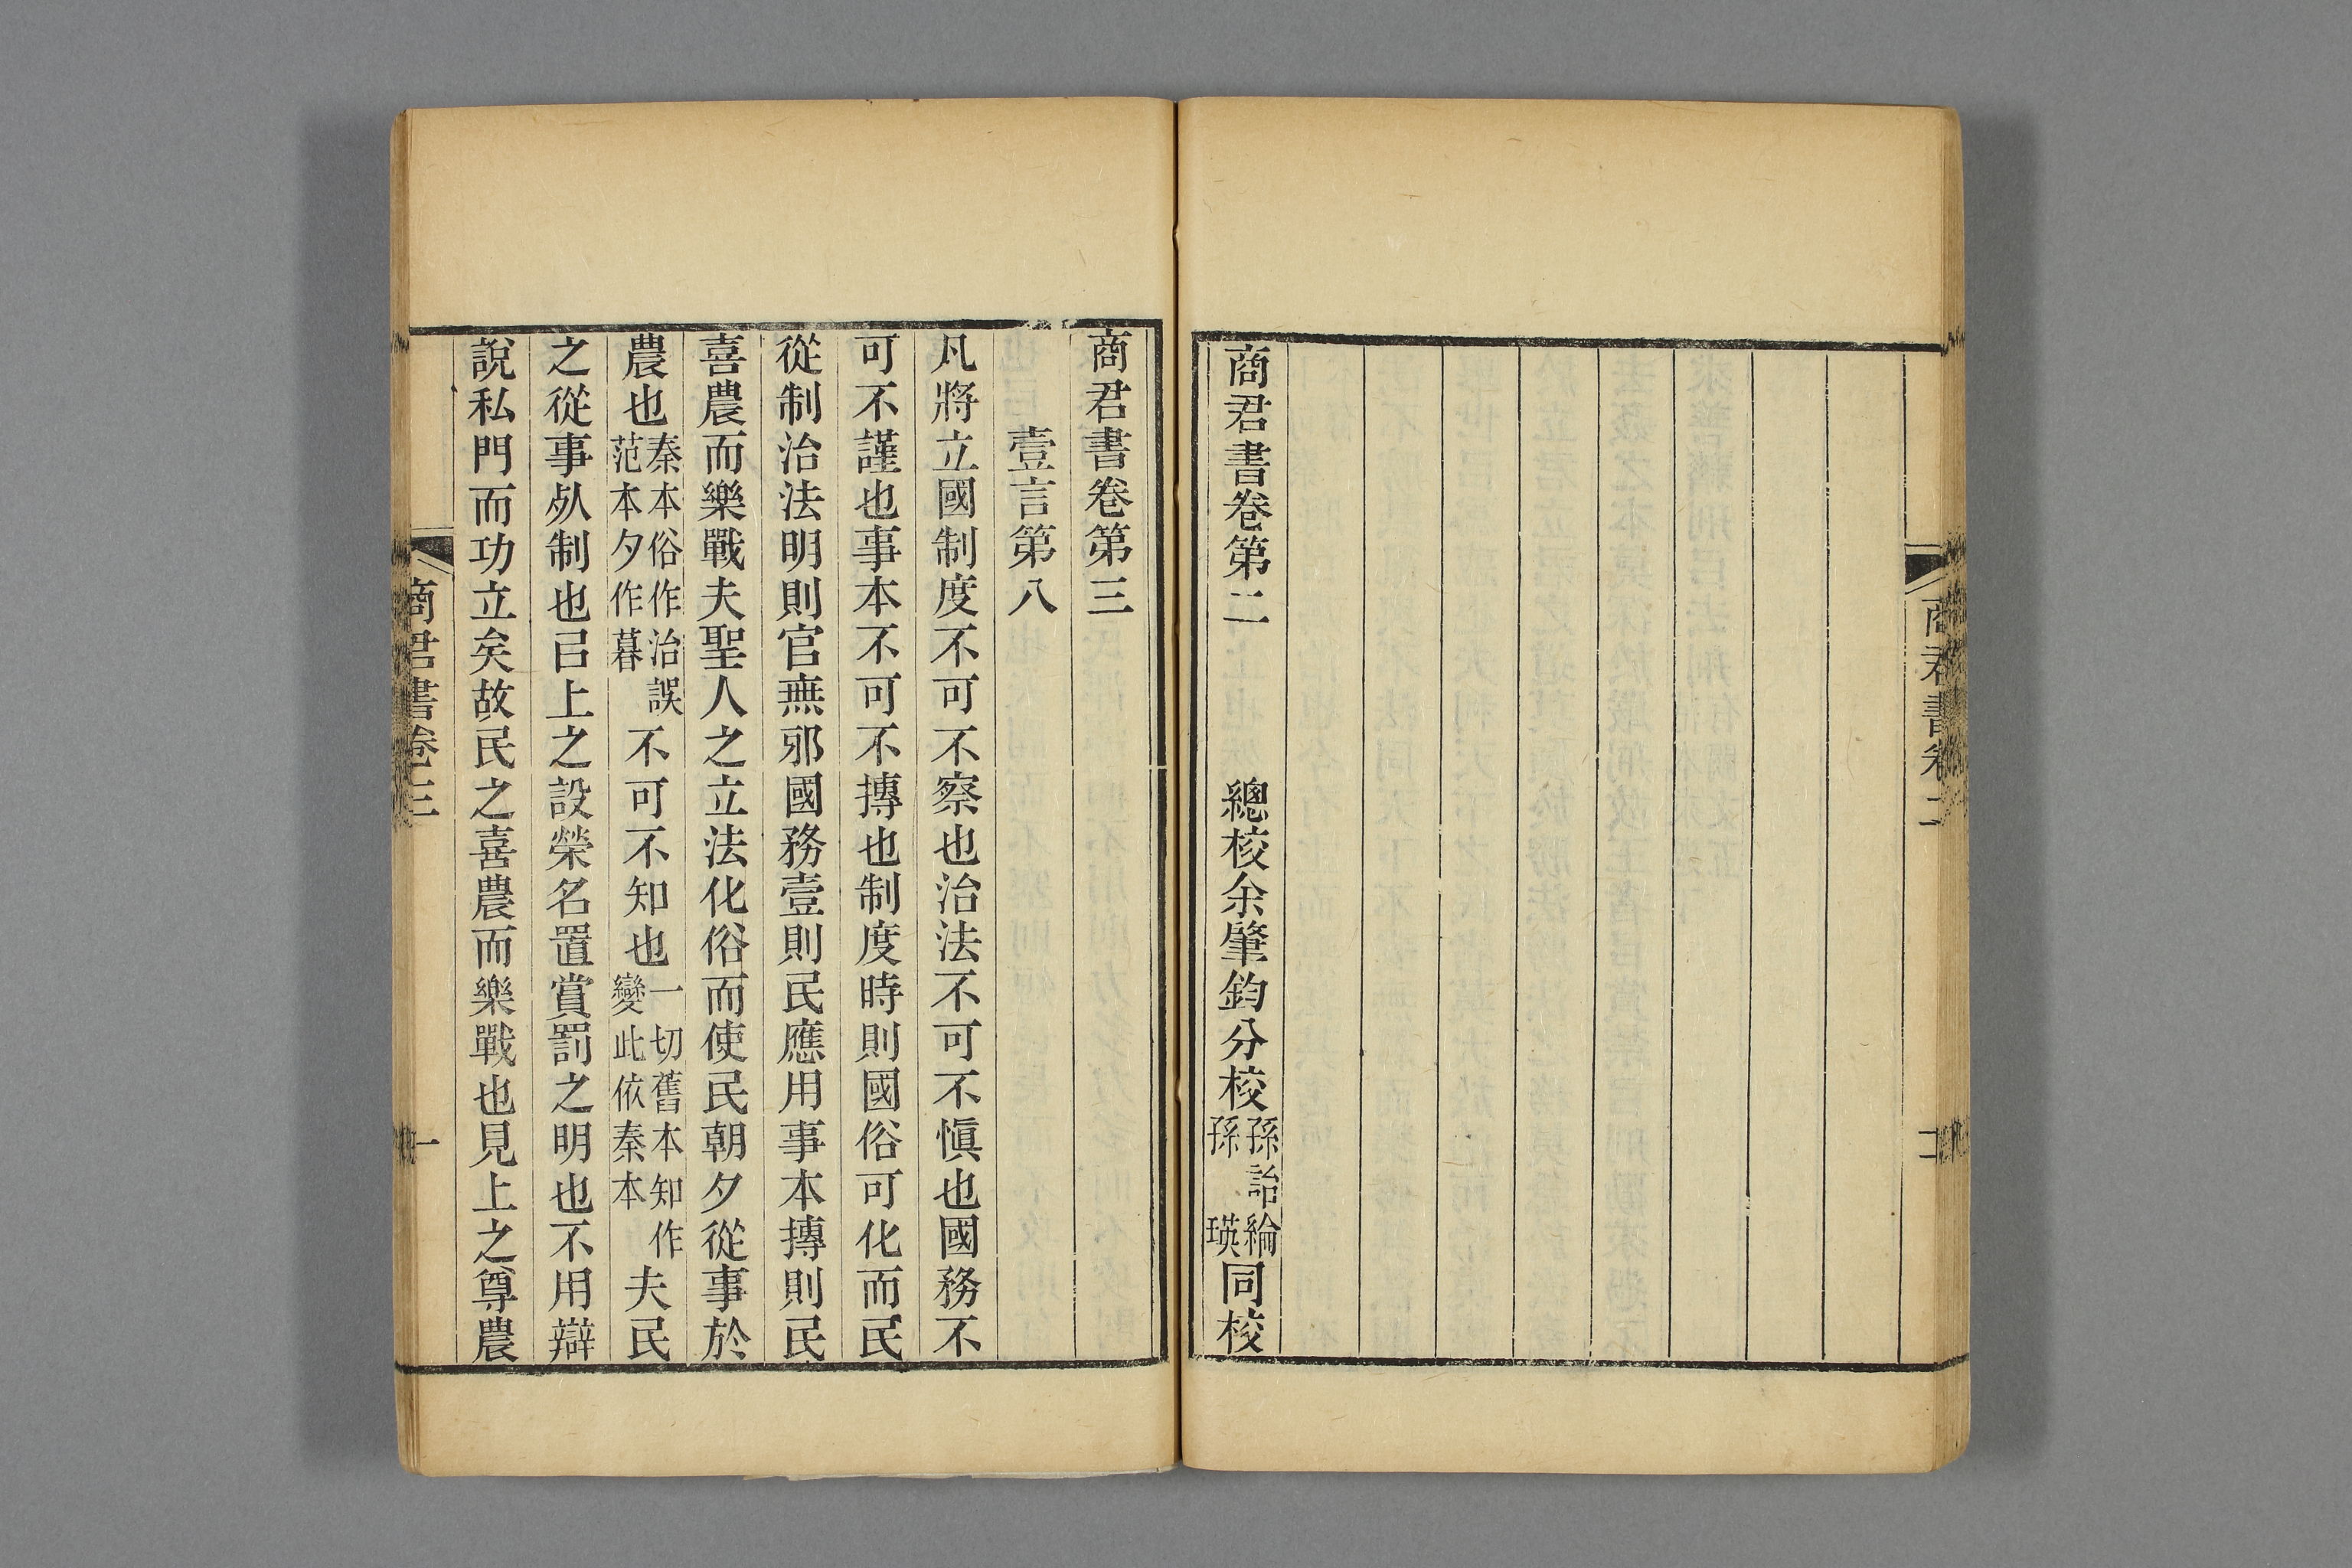 商君書卷二
二
商君書卷第二 總校余肇鈞分校孫詒綸孫瑛同校
商君書卷第三
壹言第八
凡將立國制度不可不察也治法不可不愼也國務不
可不謹也事本不可不摶也制度時則國俗可化而民
從制治法明則官無邪國務壹則民應用事本摶則民
喜農而樂戰夫聖人之立法化俗而使民朝夕從事於
農也秦本俗作治誤范本夕作暮不可不知也一切舊本知作變此依秦本夫民
之從事死制也㠯上之設榮名置賞罰之明也不用辯
說私門而功立矣故民之喜農而樂戰也見上之尊農
商君書卷三
一